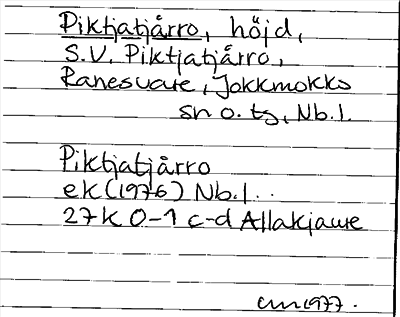 Piktjatjårro, höjd,
S.V. Piktjatjårro,
Ranesvare, Jokkmokks
sn o. tg, Nb.l.
Piktjatjårro
ek (1976) Nb.l.
27K 0-1 c-d Allakjaure
1977.